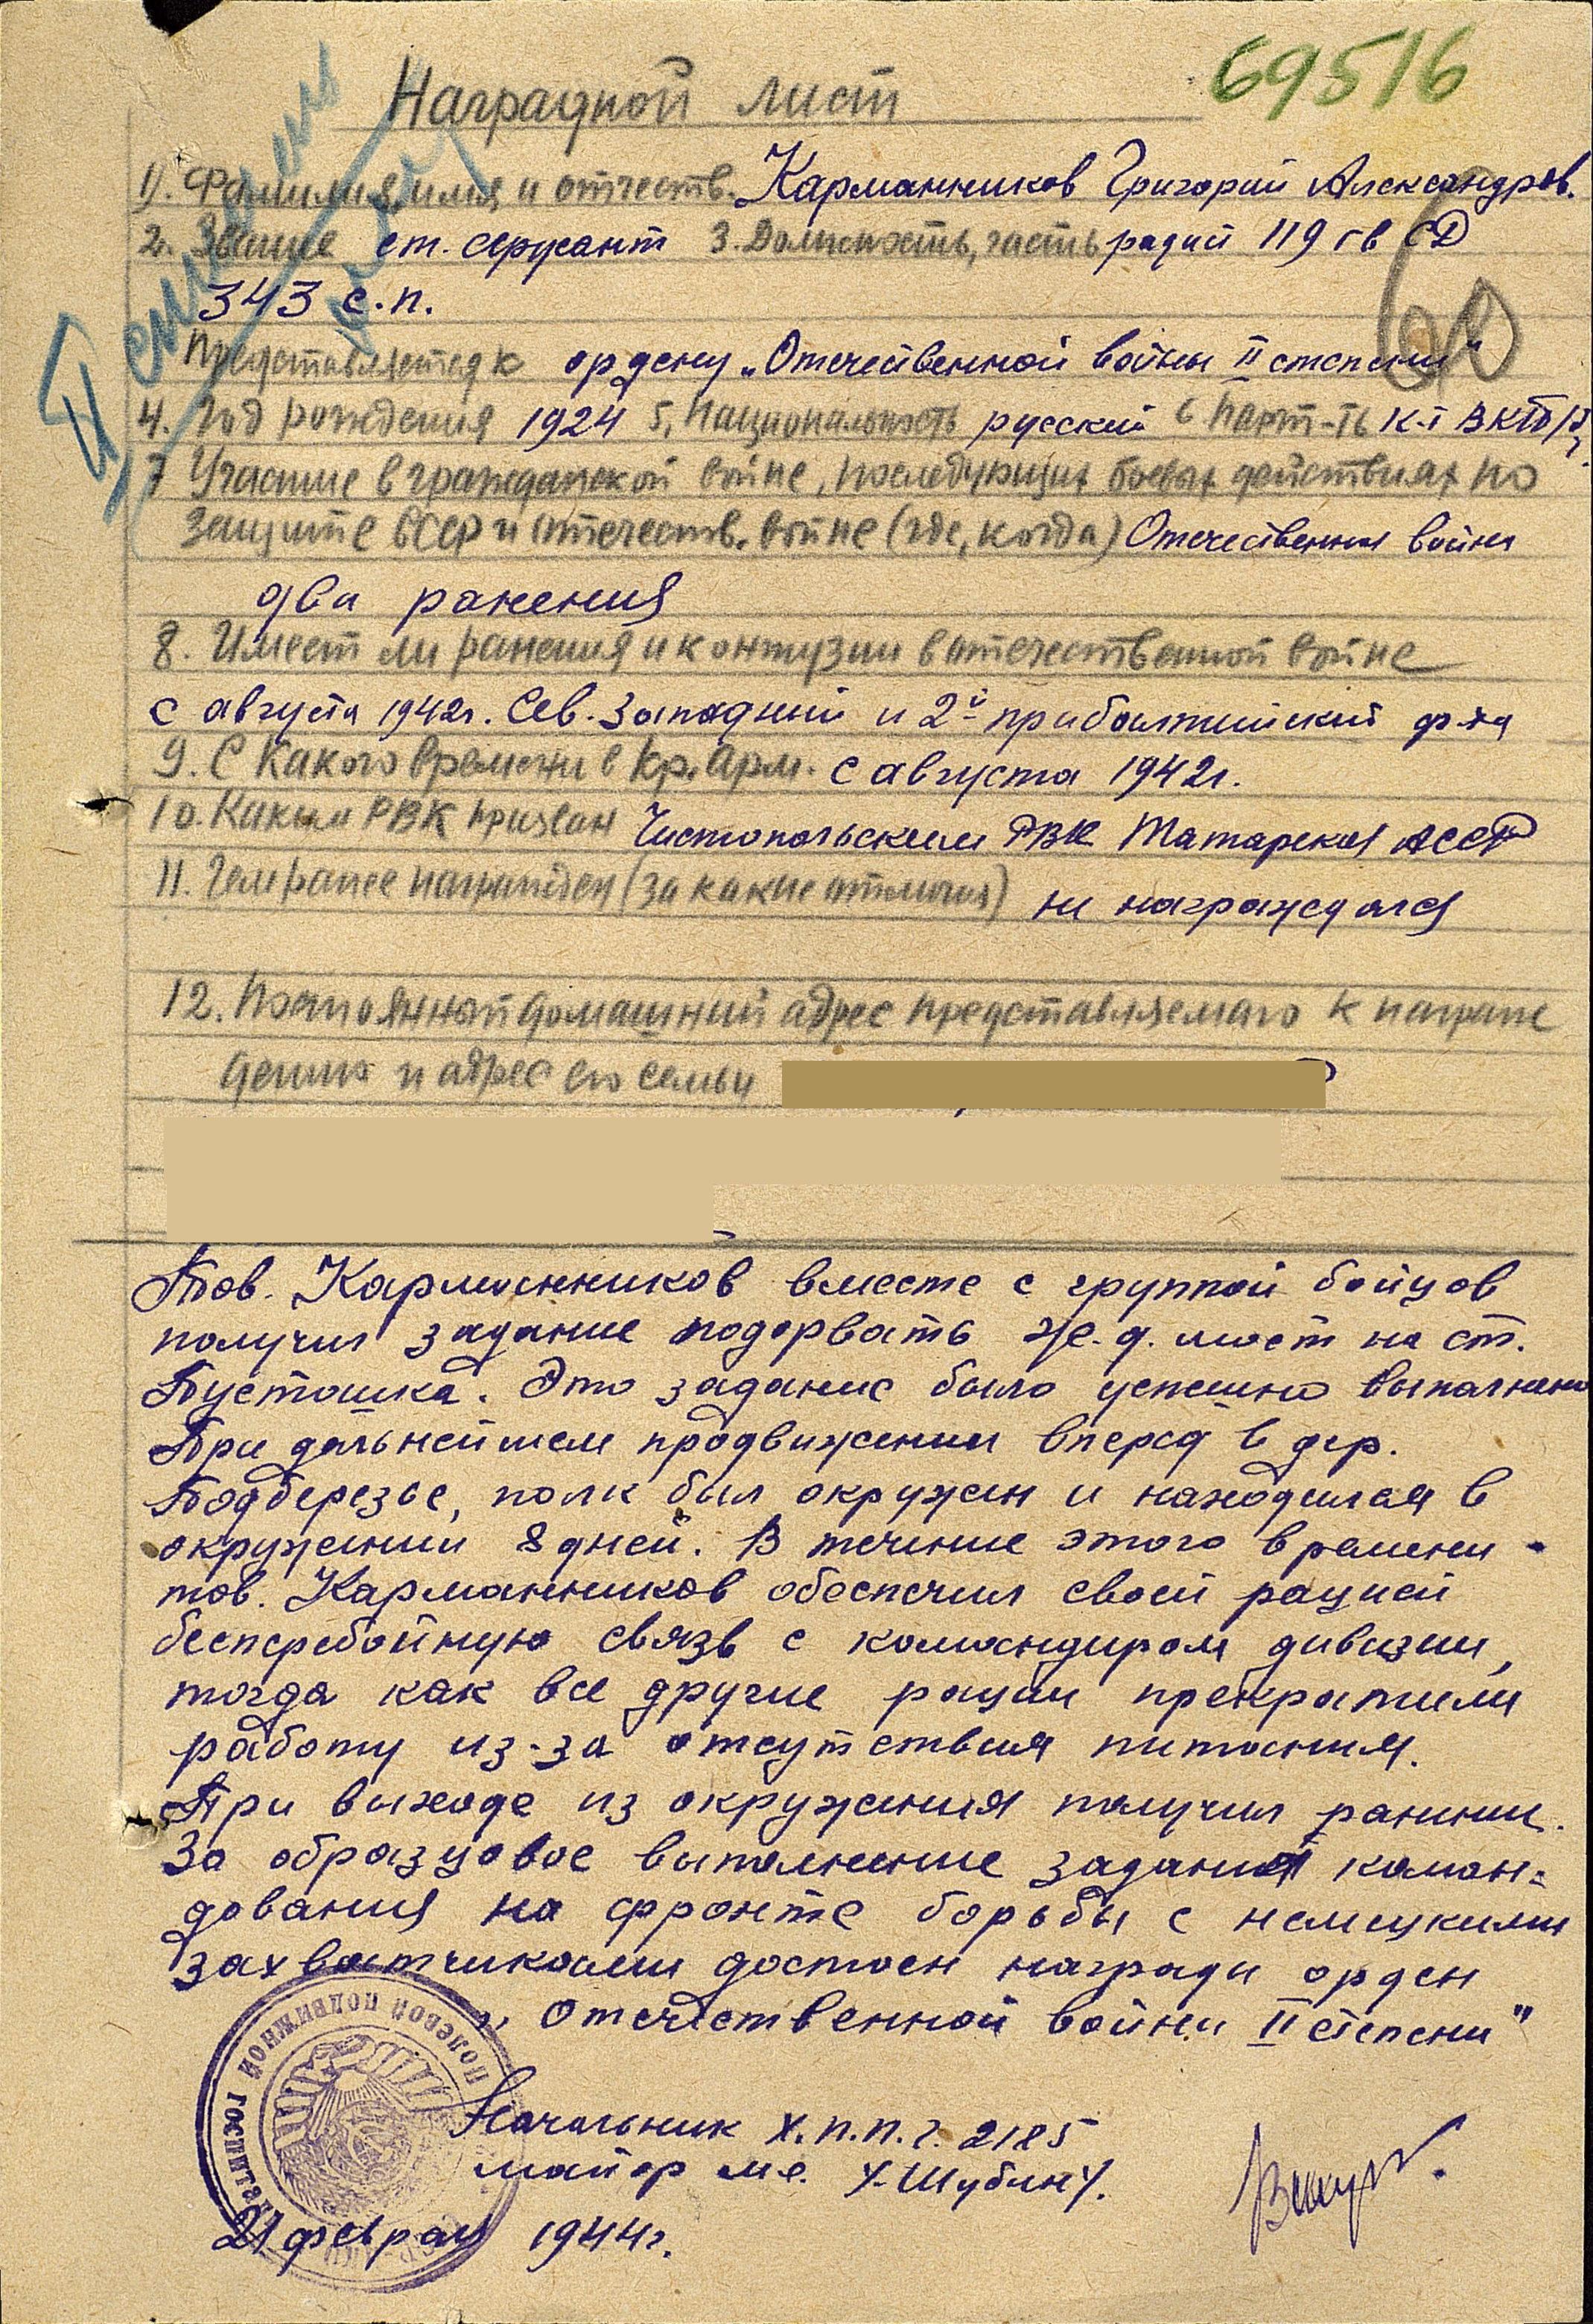 69516
Наградной лист
1). Фамилия, имя и отчеств. Карманников Григорий Александров.
2. Звание ст. сержант 3. Должность, часть радист 119 гв СД
343 с.п.
Представляется к ордену „Отечественной войны II степени"
4. Год рождения 1924 5. Национальность русский 6 Парт-ть к-т ВКП/б
7 Участие в гражданской войне, последующих боевых действиях по
защите СССР и отечеств. войне (где, когда) Отечественная война
два ранения
8. Имеет ли ранения и контузии в отечественной войне
с августа 1942г. Сев. Западный и 2й прибалтийский фр-та
9. С какого времени в Кр. Арм. с августа 1942г.
10. Каким РВК призван Чистопольским РВК Татарская АССР
11. Чем ранее награжден (за какие отличия) не награждался
12. Постоянный домашний адрес представляемаго к награж
дению и адрес его семьи
Тов. Карманников вместе с группой бойцов
получил задание подорвать ж.д. мост на ст.
Пустошка. Это задание было успешно выполнено
При дальнейшем продвижении вперед в дер.
Подберезье, полк был окружен и находился в
окружении 8 дней. В течение этого времени
тов. Карманников обеспечил своей рацией
бесперебойную связь с командиром дивизии,
тогда как все другие рации прекратили
работу из-за отсутствия питания.
При выходе из окружения получил ранение.
За образцовое выполнение задания коман-
дования на фронте борьбы с немецкими
захватчиками достоен награды орден
„Отечественной войны II степени"
Начальник х.п.п.г. 2185
майор м.с. /-Шубин/.
21 февраля 1944г.
ПОЛЕВОЙ ПОДВИЖНОЙ ГОСПИТАЛЬ